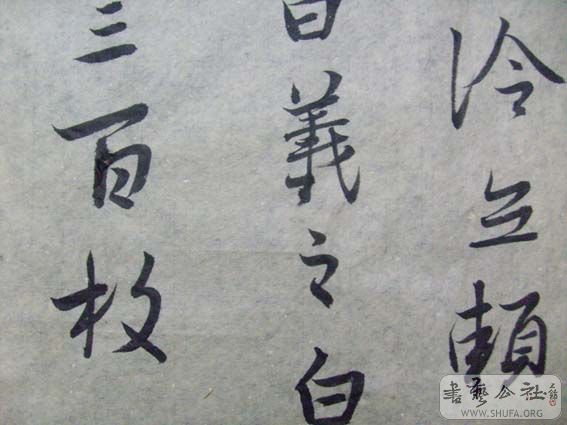 冷立頓
羲之白
三百枚
書藝公社
WWW.SHUFA.ORG